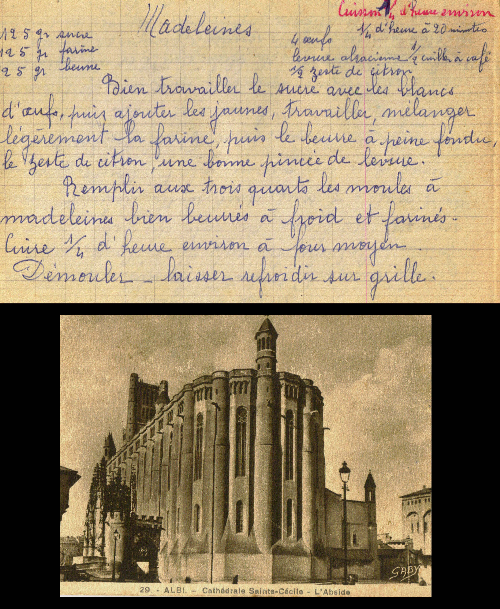 Cuisson 1/4 d'heure environ
Madeleines
1/4 d'heure à 20 minutes
125 gr sucre
125 gr farine
25 gr beurre
4 œufs
levure alsacienne 1/2 cuiller à café
1/2 zeste de citron
Bien travailler le sucre avec les blancs
d'œufs, puis ajouter les jaunes, travailler, mélanger
légèrement la farine, puis le beurre à peine fondu,
le zeste de citron, une bonne pincée de levure.
Remplir aux trois quarts les moules à
madeleines bien beurrés à froid et farinés.
Cuire 1/4 d'heure environ à four moyen.
Démouler - laisser refroidir sur grille.
29 - ALBI. - Cathédrale Sainte-Cécile - L'Abside
GABY